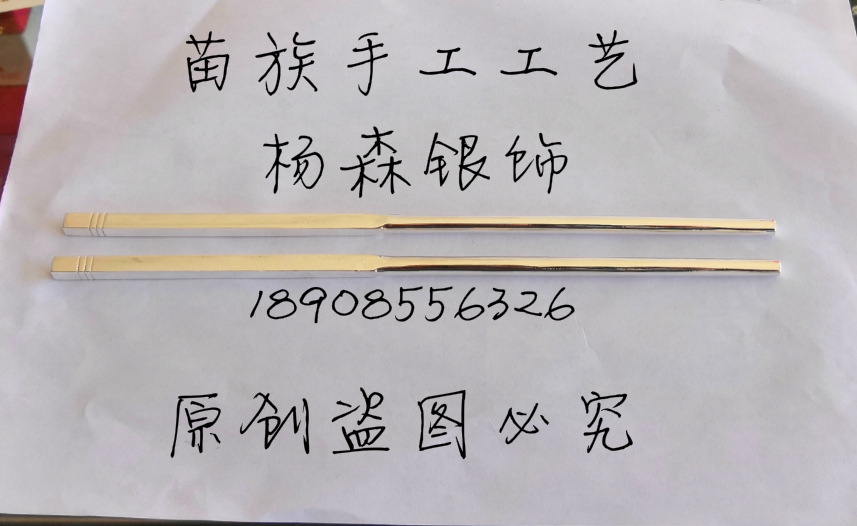 苗族手工工艺
杨森银饰
18908556326
原创盗图必究